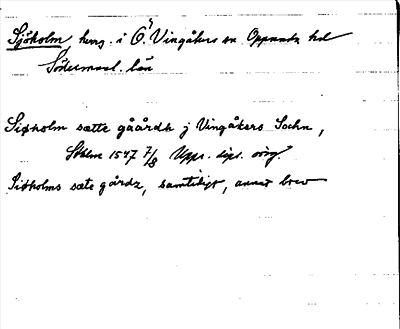 Sjöholm, herrg. i Ö. Vingåkers sn Oppunda hd
Södermanl. län
Siøholm sætte gåårdh j Vingåkers Sochn,
Sthlm 1547 7/8 Upps. dipl. orig.
Siøholms sæte gårdz, samtidigt, annat brev